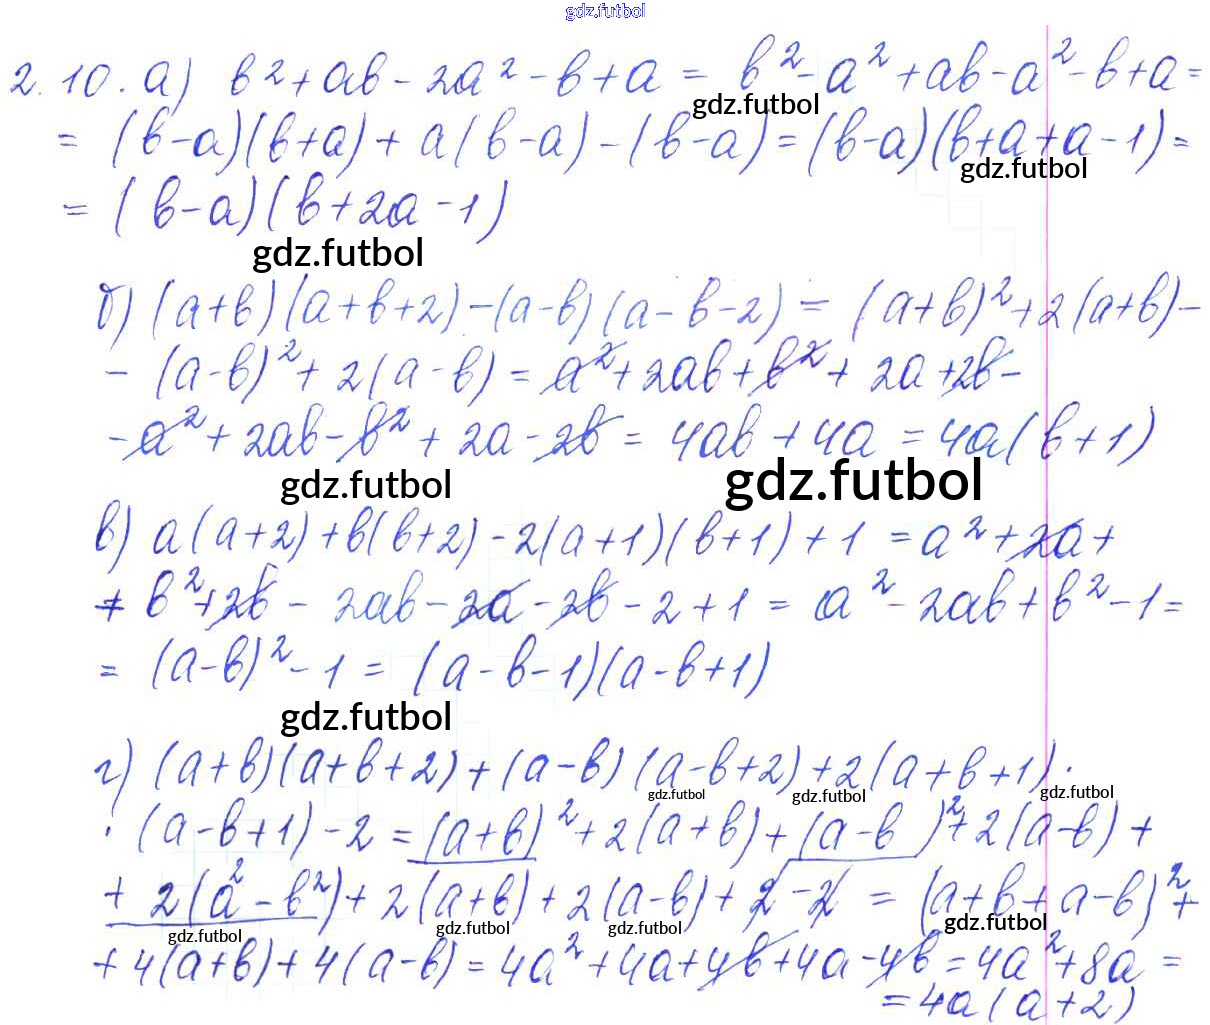 gdz.futbol
2.10. а) b² + ab - 2a² - b + a = b² - a² + ab - a² - b + a =
gdz.futbol
= (b-a)(b+a) + a(b-a) - (b-a) = (b-a)(b+a+a-1) =
gdz.futbol
= (b-a)(b+2a-1)
gdz.futbol
б) (a+b)(a+b+2) - (a-b)(a-b-2) = (a+b)² + 2(a+b) -
- (a-b)² + 2(a-b) = a² + 2ab + b² + 2a + 2b -
- a² + 2ab - b² + 2a - 2b = 4ab + 4a = 4a(b+1)
gdz.futbol gdz.futbol
в) a(a+2) + b(b+2) - 2(a+1)(b+1) + 1 = a² + 2a +
+ b² + 2b - 2ab - 2a - 2b - 2 + 1 = a² - 2ab + b² - 1 =
= (a-b)² - 1 = (a-b-1)(a-b+1)
gdz.futbol
г) (a+b)(a+b+2) + (a-b)(a-b+2) + 2(a+b+1) ·
gdz.futbol gdz.futbol gdz.futbol
· (a-b+1) - 2 = (a+b)² + 2(a+b) + (a-b)² + 2(a-b) +
+ 2(a² - b²) + 2(a+b) + 2(a-b) + 2 - 2 = (a+b+a-b)² +
gdz.futbol gdz.futbol gdz.futbol gdz.futbol
+ 4(a+b) + 4(a-b) = 4a² + 4a + 4b + 4a - 4b = 4a² + 8a =
= 4a(a+2)